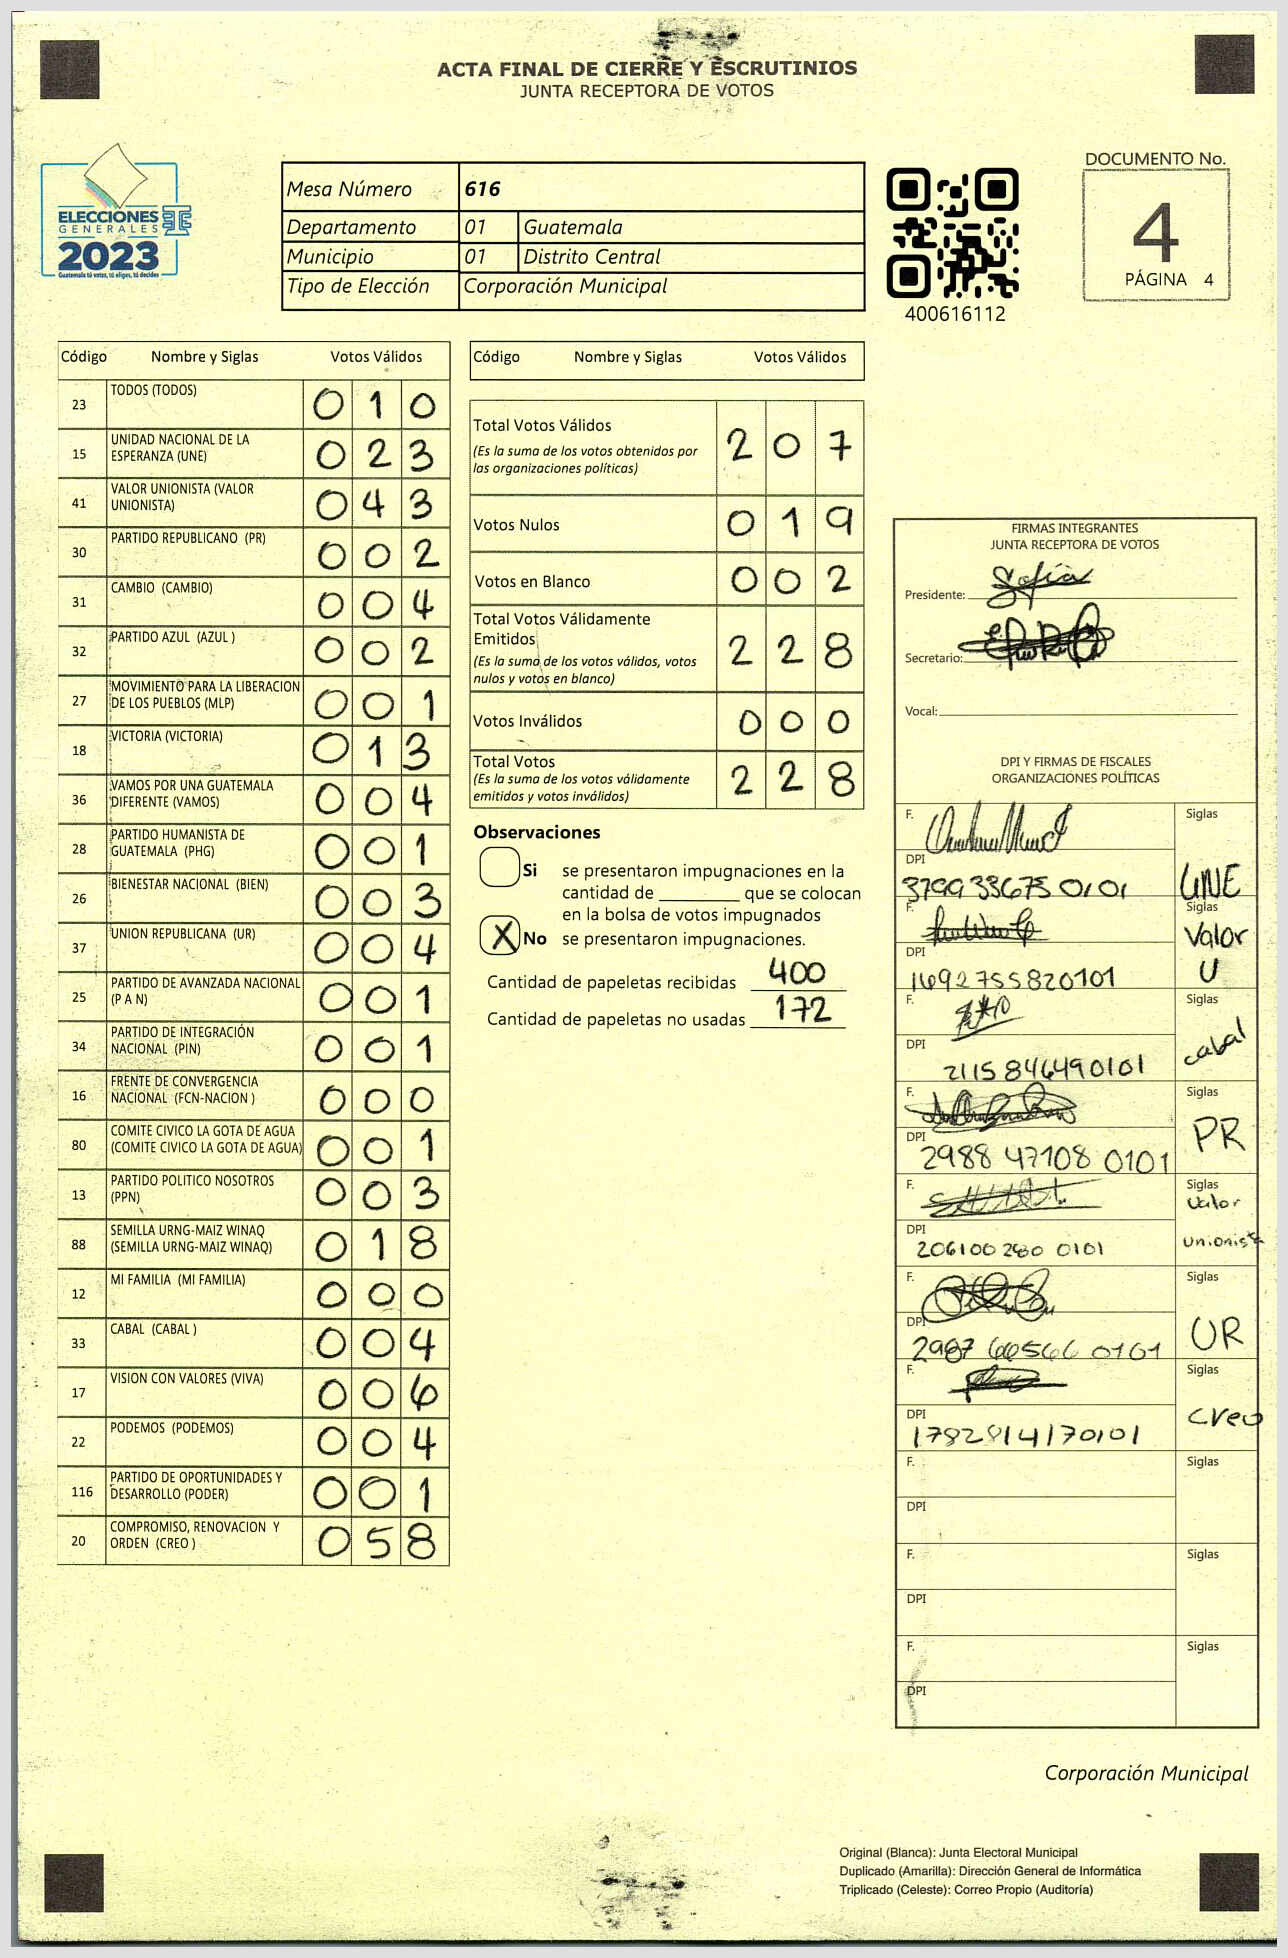 ACTA FINAL DE CIERRE Y ESCRUTINIOS
JUNTA RECEPTORA DE VOTOS
ELECCIONES
GENERALES
2023
Guatemala tú votas, tú eliges, tú decides
Mesa Número 616
Departamento 01 Guatemala
Municipio 01 Distrito Central
Tipo de Elección Corporación Municipal
400616112
DOCUMENTO No.
4
PÁGINA 4
Código Nombre y Siglas Votos Válidos
23 TODOS (TODOS) 0 1 0
15 UNIDAD NACIONAL DE LA
ESPERANZA (UNE) 0 2 3
41 VALOR UNIONISTA (VALOR
UNIONISTA) 0 4 3
30 PARTIDO REPUBLICANO (PR) 0 0 2
31 CAMBIO (CAMBIO) 0 0 4
32 PARTIDO AZUL (AZUL ) 0 0 2
27 MOVIMIENTO PARA LA LIBERACION
DE LOS PUEBLOS (MLP) 0 0 1
18 VICTORIA (VICTORIA) 0 1 3
36 VAMOS POR UNA GUATEMALA
DIFERENTE (VAMOS) 0 0 4
28 PARTIDO HUMANISTA DE
GUATEMALA (PHG) 0 0 1
26 BIENESTAR NACIONAL (BIEN) 0 0 3
37 UNION REPUBLICANA (UR) 0 0 4
25 PARTIDO DE AVANZADA NACIONAL
(P A N) 0 0 1
34 PARTIDO DE INTEGRACIÓN
NACIONAL (PIN) 0 0 1
16 FRENTE DE CONVERGENCIA
NACIONAL (FCN-NACION ) 0 0 0
80 COMITE CIVICO LA GOTA DE AGUA
(COMITE CIVICO LA GOTA DE AGUA) 0 0 1
13 PARTIDO POLITICO NOSOTROS
(PPN) 0 0 3
88 SEMILLA URNG-MAIZ WINAQ
(SEMILLA URNG-MAIZ WINAQ) 0 1 8
12 MI FAMILIA (MI FAMILIA) 0 0 0
33 CABAL (CABAL ) 0 0 4
17 VISION CON VALORES (VIVA) 0 0 6
22 PODEMOS (PODEMOS) 0 0 4
116 PARTIDO DE OPORTUNIDADES Y
DESARROLLO (PODER) 0 0 1
20 COMPROMISO, RENOVACION Y
ORDEN (CREO ) 0 5 8
Código Nombre y Siglas Votos Válidos
Total Votos Válidos 2 0 7
(Es la suma de los votos obtenidos por
las organizaciones políticas)
Votos Nulos 0 1 9
Votos en Blanco 0 0 2
Total Votos Válidamente
Emitidos 2 2 8
(Es la suma de los votos válidos, votos
nulos y votos en blanco)
Votos Inválidos 0 0 0
Total Votos 2 2 8
(Es la suma de los votos válidamente
emitidos y votos inválidos)
Observaciones
Si se presentaron impugnaciones en la
cantidad de ________ que se colocan
en la bolsa de votos impugnados
X No se presentaron impugnaciones.
Cantidad de papeletas recibidas 400
Cantidad de papeletas no usadas 172
FIRMAS INTEGRANTES
JUNTA RECEPTORA DE VOTOS
Presidente: Sofía
Secretario:
Vocal:
DPI Y FIRMAS DE FISCALES
ORGANIZACIONES POLÍTICAS
F. Siglas
DPI
3799 33675 0101 UNE
F. Siglas
Valor
DPI U
1692755820101
F. Siglas
DPI cabal
2115 846490101
F. Siglas
DPI PR
2988 47108 0101
F. Siglas
Valor
DPI Unionista
206100280 0101
F. Siglas
DPI UR
2987 66566 0101
F. Siglas
DPI Creo
1782814170101
F. Siglas
DPI
F. Siglas
DPI
F. Siglas
DPI
Corporación Municipal
Original (Blanca): Junta Electoral Municipal
Duplicado (Amarilla): Dirección General de Informática
Triplicado (Celeste): Correo Propio (Auditoría)